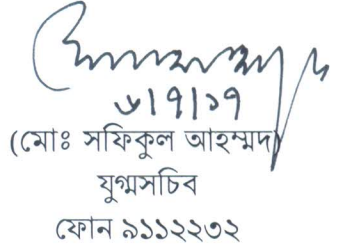 ৬/৭/১৭
(মোঃ সফিকুল আহম্মদ)
যুগ্মসচিব
ফোন ৯১১২২৩২